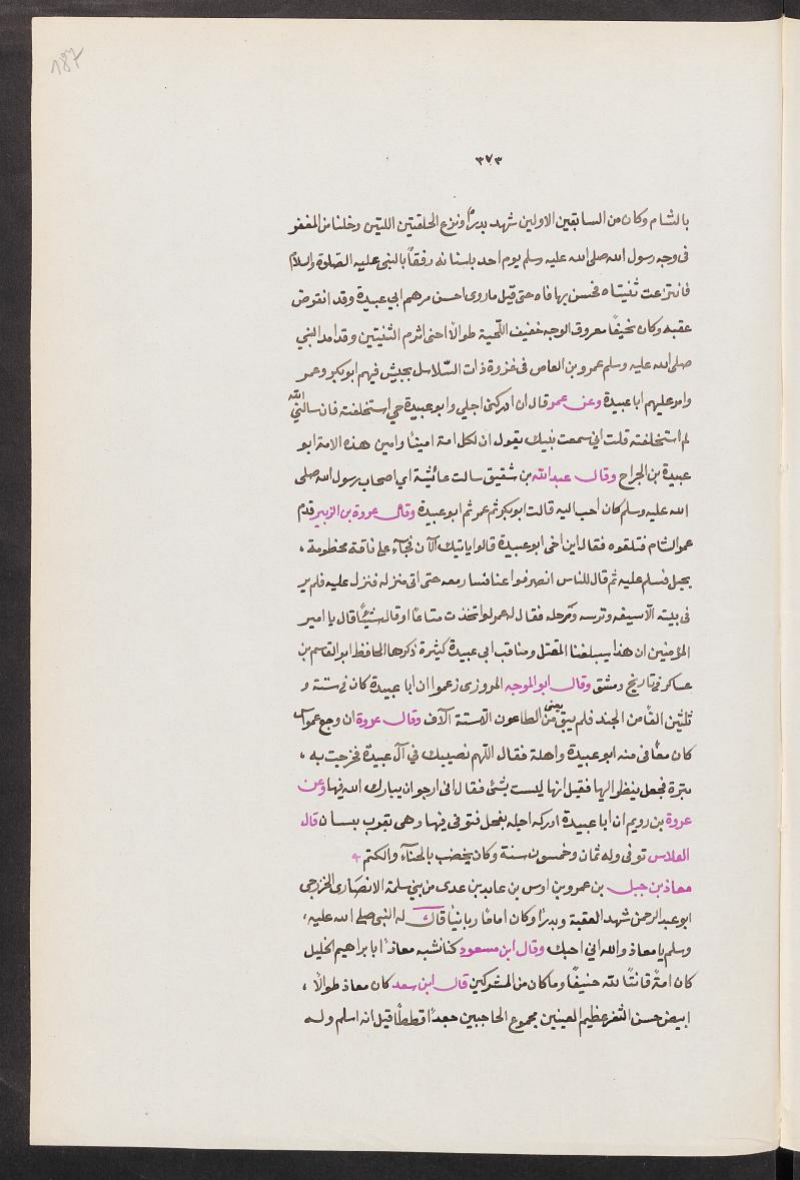 187
٣٧٣
بالشام وكان من السابقين الاولين شهد بدرًا ونزع الحلقتين اللتين دخلتا من المغفر
فى وجه رسول الله صلى الله عليه وسلم يوم احد باسنانه رفقًا بالنبى عليه الصلوة والسلام
فانتزعت ثنيتاه فحسن بها فاه حتى قيل ماروى احسن من هتم ابي عبيدة وقد انقرض
عقبه وكان نحيفًا معروق الوجه خفيف اللّحية طوالًا احنى اثرم الثنيتين وقد امد النبي
صلى الله عليه وسلم عمرو بن العاص فى غزوة ذات السّلاسل بجيش فيهم ابوبكر وعمر
وامر عليهم ابا عبيدة وعن عمر قال ان ادركنى اجلى وابو عبيدة حي استخلفته فان سالني الله
لم استخلفته قلت اني سمعت نبيك يقول ان لكل امة امينًا وامين هذه الامة ابو
عبيدة بن الجراح وقال عبدالله بن شقيق سالت عائشة اي اصحاب رسول الله صلى
الله عليه وسلم كان أحب اليه قالت ابوبكر ثم عمر ثم ابو عبيدة وقال عروة بن الزبير قدم
عمر الشام فتلقوه فقال اين اخى ابو عبيدة قالوا ياتيك الآن فجآء على ناقة مخطومة ،
بحبل فسلم عليه ثم قال للناس انصرفوا عنا فسار معه حتى اتى منزله فنزل عليه فلم ير
فى بيته الّا سيفه وترسه ورحله فقال له عمر لو اتخذت متاعًا او قال شيئًا قال يا امير
المؤمنين ان هذا يبلغنا المقيل ومناقب ابى عبيدة كثيرة ذكرها الحافظ ابو القاسم بن
عساكر فى تاريخ دمشق وقال ابو الموجه المروزى زعموا ان ابا عبيدة كان فى ستة و
ثلثين الفًا من الجند فلم يبق من يعنى الطاعون الّا ستة الآف وقال عروة ان وجع عمواس
كان معافى منه ابو عبيدة واهله فقال اللّهم نصيبك في آل عبيدة فخرجت به ،
بثرة فجعل ينظر اليها فقيل انها ليست بشئ فقال انى ارجو ان يبارك الله فيها وعن
عروة بن رويم ان ابا عبيدة ادركه اجله بفحل فتوفى فيها وهى بقرب بيسان قال
الفلاس توفى وله ثمان وخمسون سنة وكان يخضب بالحنّاء والكتم
معاذ بن جبل بن عمرو بن اوس بن عابد بن عدى من بني سلمة الانصارى الخزرجى
ابو عبد الرحمن شهد العقبة وبدرًا وكان امامًا ربانيًا قال له النبى صلى الله عليه ،
وسلم يا معاذ والله انى احبك وقال ابن مسعود كنا نشبه معاذًا بابراهيم الخليل
كان امةً قانتًا لله حنيفًا وما كان من المشركين قال ابن سعد كان معاذ طوالًا ،
ابيض حسن الثغر عظيم العينين مجموع الحاجبين جعدًا قططًا قيل انه اسلم وله